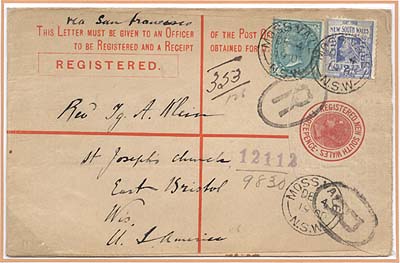 via San Francisco
THIS LETTER MUST BE GIVEN TO AN OFFICER
TO BE REGISTERED AND A RECEIPT
OF THE POST
OBTAINED FOR
REGISTERED.
353
NEW SOUTH WALES
MOSS VALE
N.S.W
MOSS VALE
N.S.W.
R
Rev Ig. A. Klein
REGISTERED NEW SOUTH WALES
THREEPENCE
St Joseph's church
12112
East Bristol
9830
Wis
U. S. America
MOSS VALE
DE 4
N.S.W
R